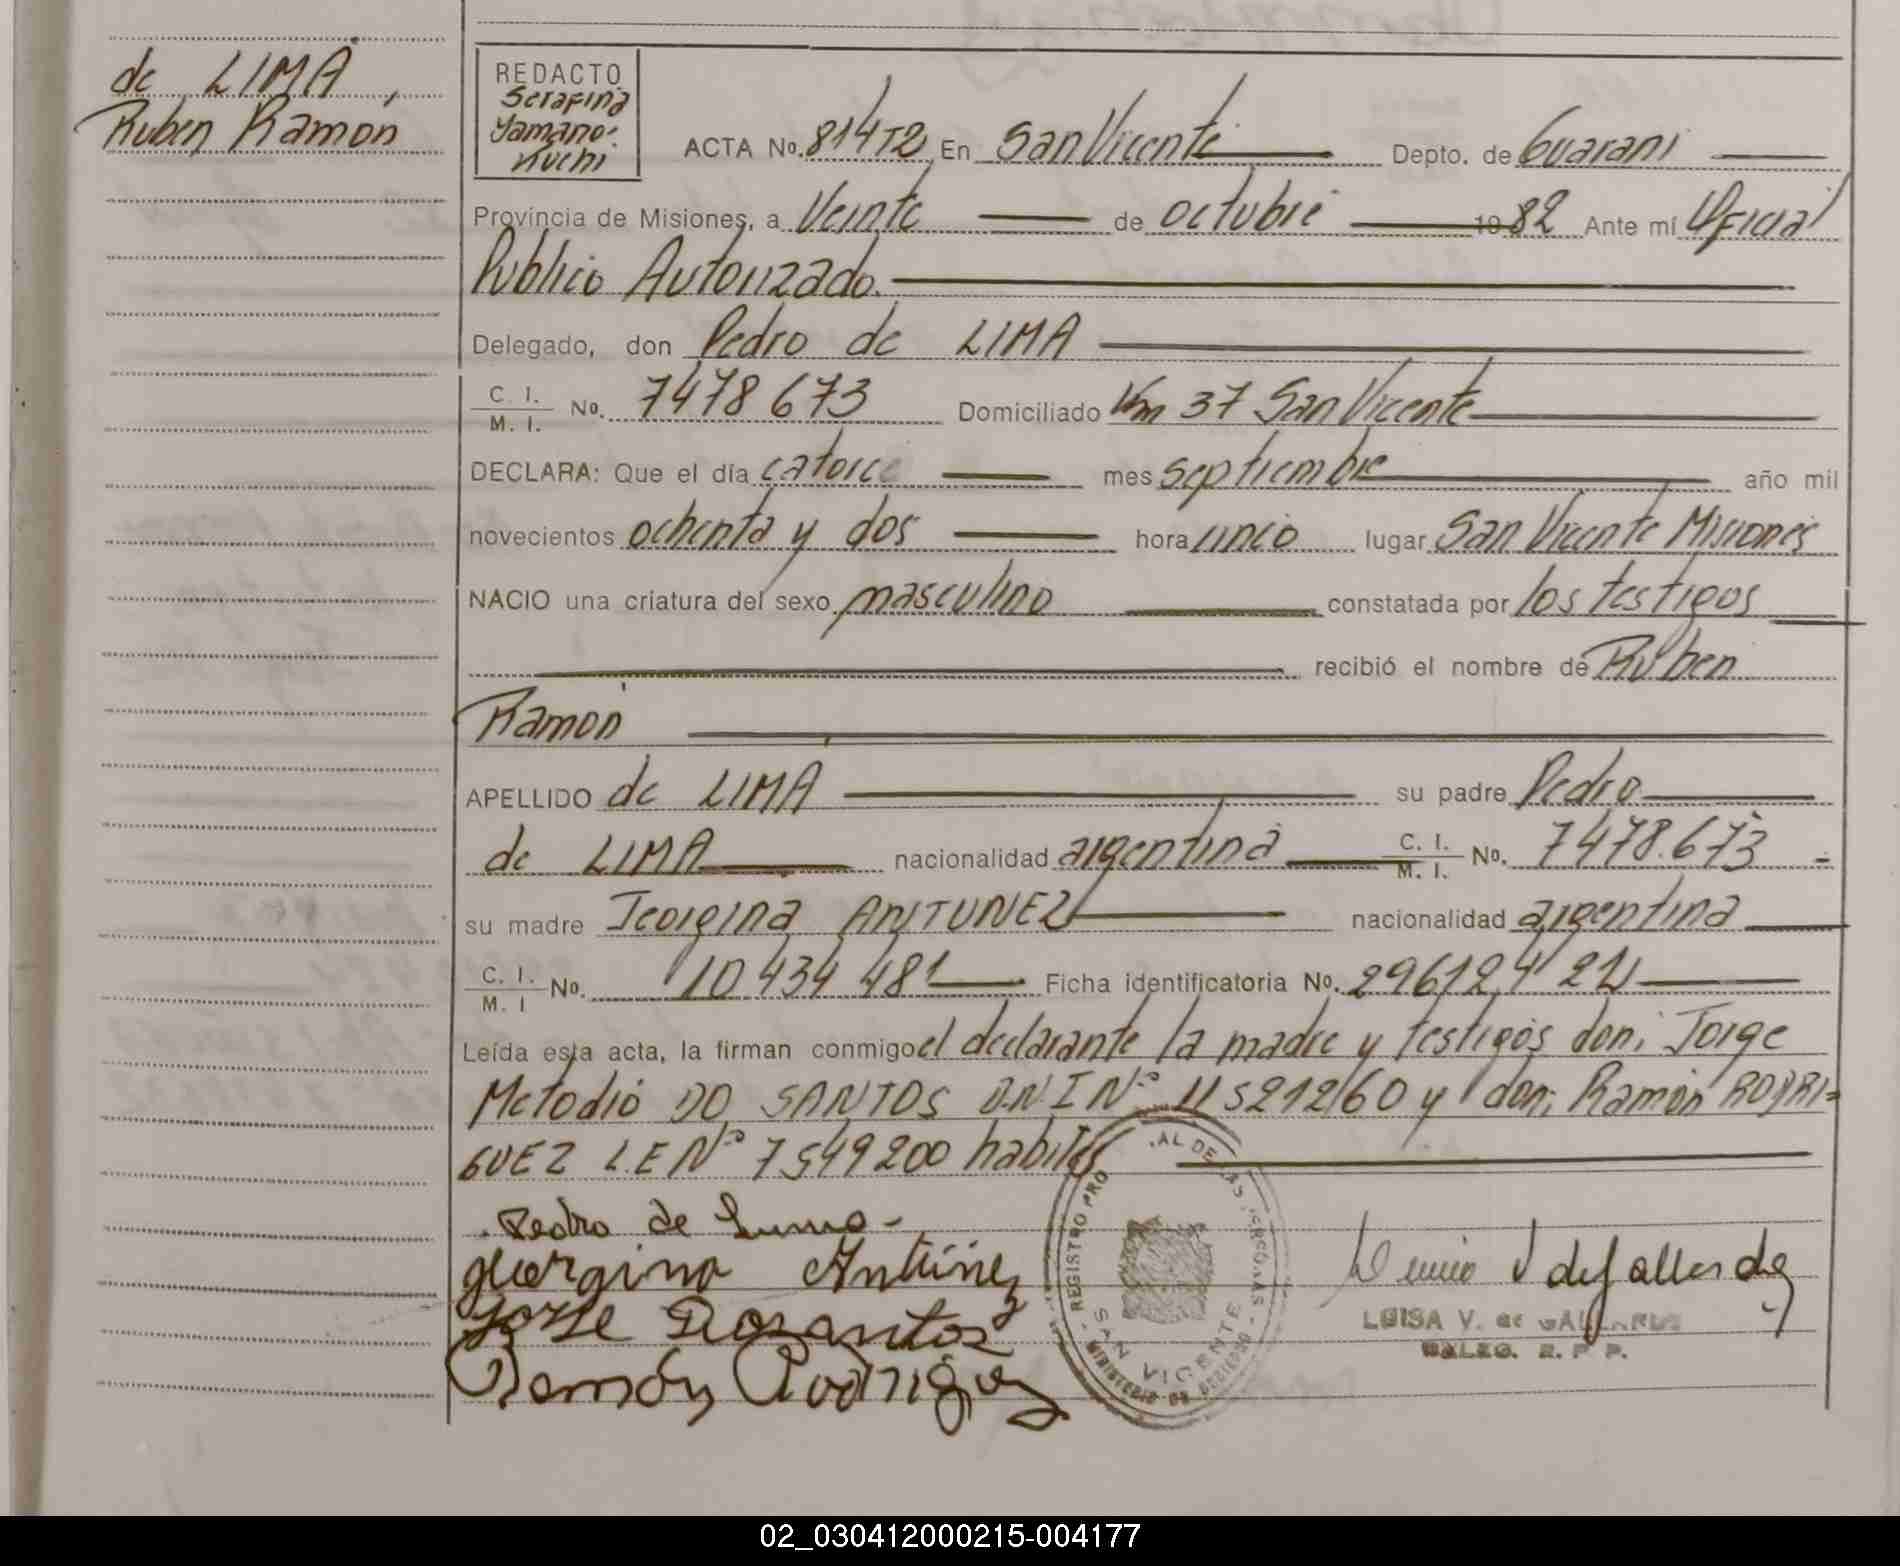 de LIMA,
Ruben Ramon
REDACTO
Serafina
Yamano-
Kuchi
ACTA No. 814T2 En San Vicente Depto. de Guarani
Provincia de Misiones, a Veinte de octubre 1982 Ante mí Oficial
Publico Autorizado.
Delegado, don Pedro de LIMA
C. I. / M. I. No. 7478673 Domiciliado Km 37 San Vicente
DECLARA: Que el día catorce mes septiembre año mil
novecientos ochenta y dos hora cinco lugar San Vicente Misiones
NACIO una criatura del sexo masculino constatada por los testigos
recibió el nombre de Ruben
Ramon
APELLIDO de LIMA su padre Pedro
de LIMA nacionalidad argentina C. I. / M. I. No. 7478.673 -
su madre Jeorgina ANTUNEZ nacionalidad argentina
C. I. / M. I No. 10434481 Ficha identificatoria No.
Leída esta acta, la firman conmigo el declarante la madre y testigos don: Jorge
Metodio DO SANTOS D.N.I Nº 11521260 y don: Ramón RODRI=
GUEZ L.E Nº 7549200 habiles
Pedro de Lima-
georgina Antúnez
Jorge Dosantos
Ramón Rodriguez
REGISTRO PRO AL DE LAS PERSONAS
SAN VICENTE
MINISTERIO DE GOBIERNO
de Gallardo
LUISA V. de GALLARDO
DELEG. R. P. P.
02_030412000215-004177